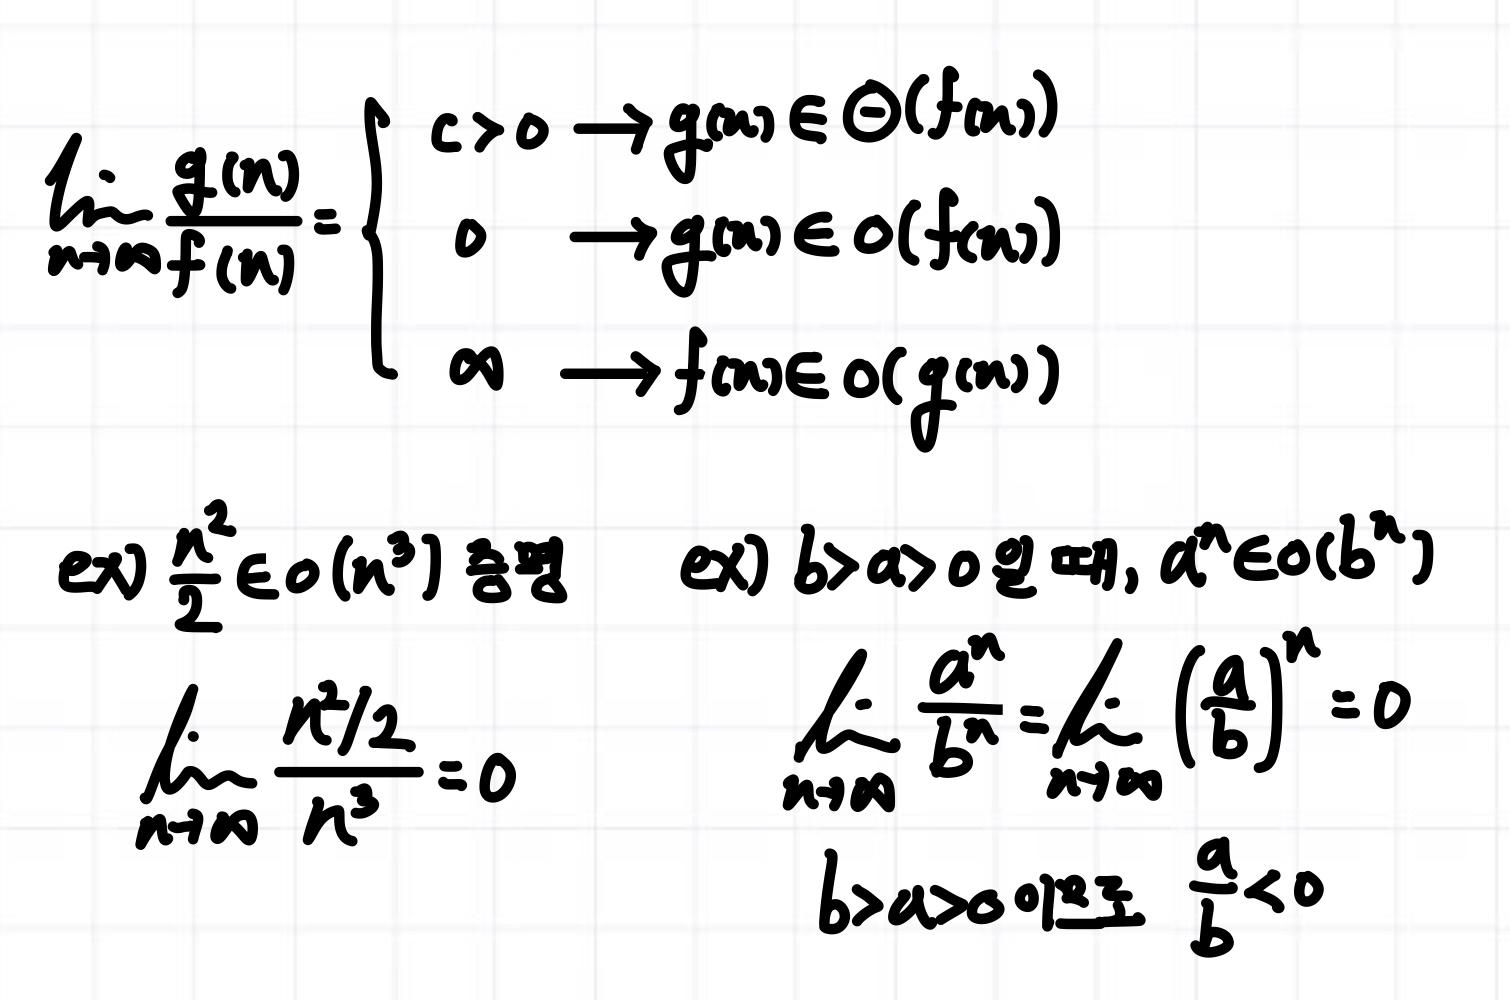 lim n→∞ g(n)/f(n) = { c > 0 → g(n) ∈ Θ(f(n))
0 → g(n) ∈ o(f(n))
∞ → f(n) ∈ o(g(n))
ex) n²/2 ∈ o(n³) 증명
lim n→∞ (n²/2)/n³ = 0
ex) b>a>0 일 때, aⁿ∈o(bⁿ)
lim n→∞ aⁿ/bⁿ = lim n→∞ (a/b)ⁿ = 0
b>a>0 이므로 a/b < 0